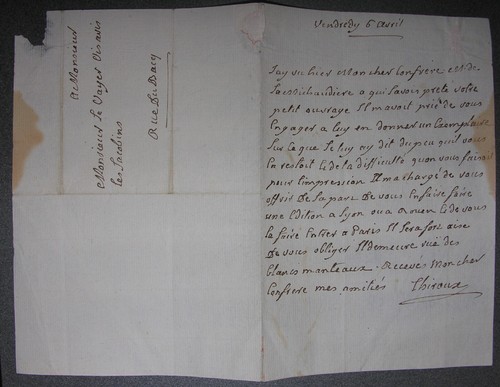 Vendredy 6 avril
Jay vu hier Mon cher Confrère M. de
la Michaudiere a qui javois preté votre
petit ouvrage Il mavoit prié de vous
Engager a luy en donner un Exemplaire
Sur Ce que Je luy ay dit du peu quil vous
En restoit & de la difficulté quon vous faisoit
pour limpression Il ma chargé de vous
offrir De la part De vous En faire faire
une Edition a Lyon ou a Rouen & de vous
la faire Entrer a Paris Il sera fort aise
De vous obliger Il demeure rue des
blancs manteaux. Recevés Mon cher
Confrere mes amitiés Thiroux
A Monsieur
Monsieur Le Vayer Visavis
les Jacobins
Rue Du Bacq